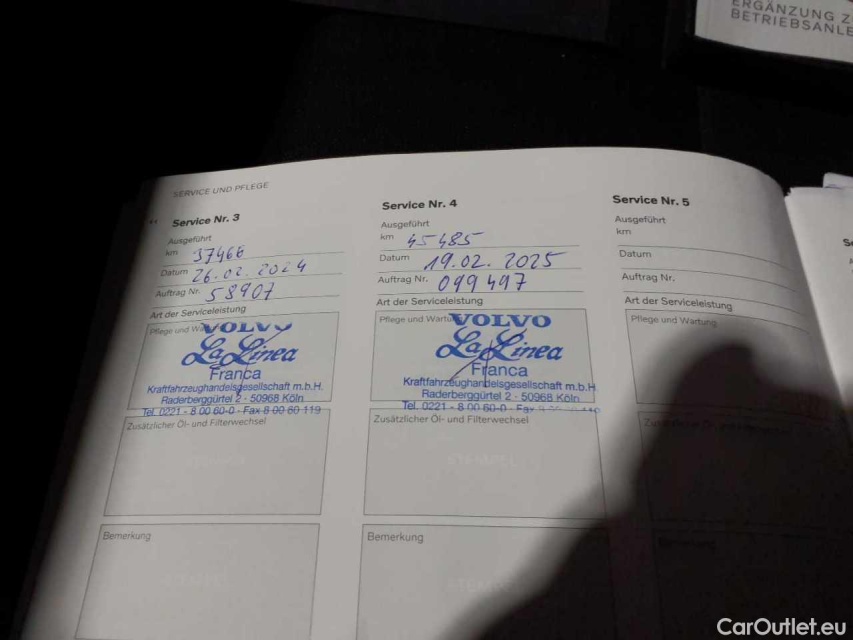 ERGÄNZUNG Z
BETRIEBSANLE
SERVICE UND PFLEGE
Service Nr. 3
Ausgeführt
km 37466
Datum 26.02.2024
Auftrag Nr. 58907
Art der Serviceleistung
Pflege und Wa
VOLVO
La Linea
Franca
Kraftfahrzeughandelsgesellschaft m.b.H.
Raderberggürtel 2 - 50968 Köln
Tel. 0221 - 8 00 60-0 - Fax 8 00 60 119
Zusätzlicher Öl- und Filterwechsel
Bemerkung
Service Nr. 4
Ausgeführt
km 45485
Datum 19.02.2025
Auftrag Nr. 099497
Art der Serviceleistung
Pflege und Wartu
VOLVO
La Linea
Franca
Kraftfahrzeughandelsgesellschaft m.b.H
Raderberggürtel 2 - 50968 Köln
Tel. 0221 - 8 00 60-0 - Fax
Zusätzlicher Öl- und Filterwechsel
Bemerkung
Service Nr. 5
Ausgeführt
km
Datum
Auftrag Nr.
Art der Serviceleistung
Pflege und Wartung
Bemerkung
CarOutlet.eu